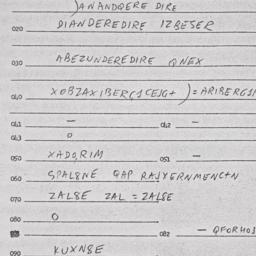 JANANDQERE DIRE
020 DIANDEREDIRE IZBESER
030 ABEZUNDEREDIRE QNEX
040 XOBZAXIBER(1CEJG+ )=ARIBERG1
041 — 042 —
043 0
050 XADO,RIM 051 —
060 SPAL8NE GAP RAJYERNMENC+N
070 ZAL8E ZAL = ZAL8E
080 0
082 — QFORHO1
090 KUXN8E